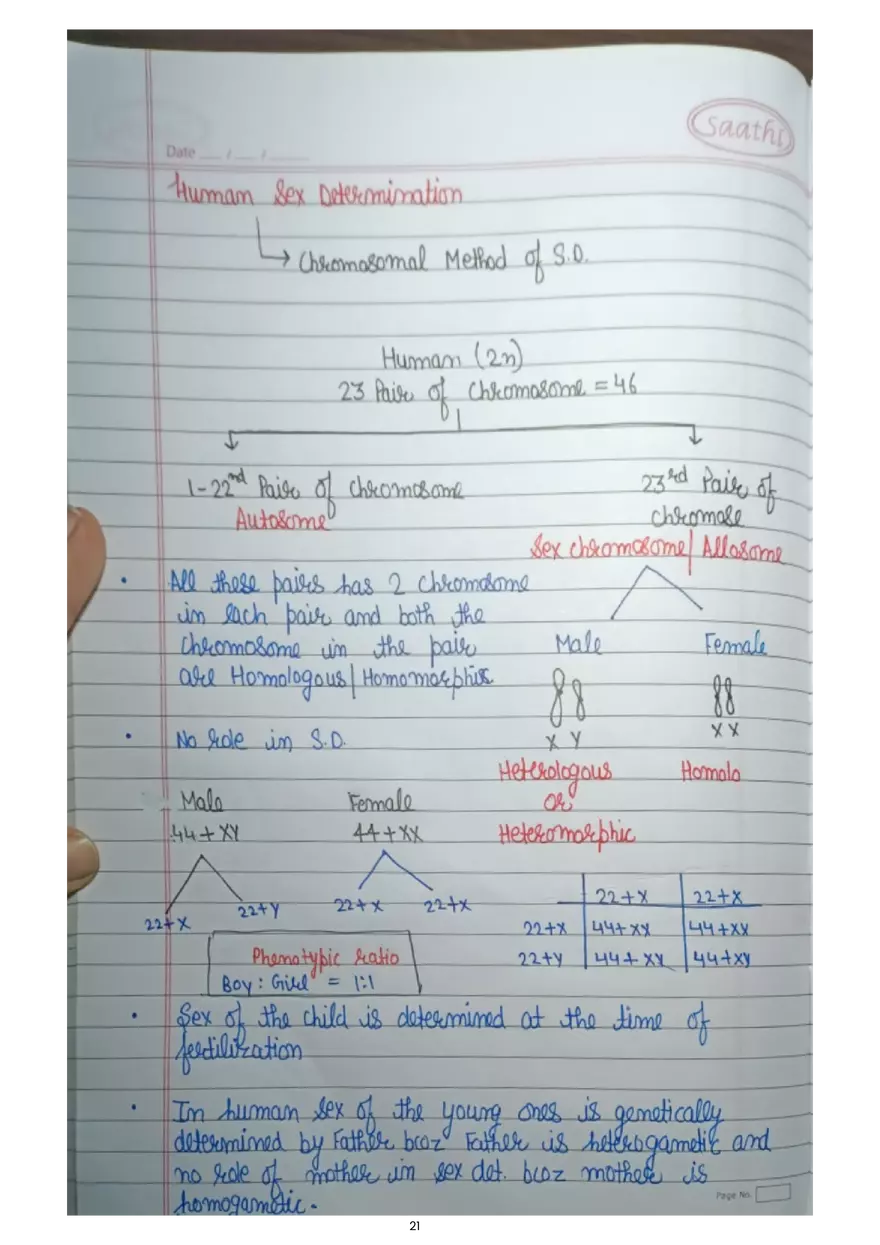 Saathi
Date __/__/____
Human Sex Determination
→ Chromosomal Method of S.D.
Human (2n)
23 Pair of Chromosome = 46
1-22nd Pair of Chromosome
Autosome
23rd Pair of
chromose
Sex chromosome/Allosome
• All these pairs has 2 Chromosome
in each pair and both the
Chromosome in the pair
are Homologous/Homomorphic
• No role in S.D.
Male Female
X Y X X
Heterologous Homolo
or
Heteromorphic
Male Female
44+XY 44+XX
22+X 22+Y 22+X 22+X
22+X 22+X
22+X 44+XX 44+XX
22+Y 44+XY 44+XY
Phenotypic ratio
Boy : Girl = 1:1
• Sex of the child is determined at the time of
fertilization
• In human sex of the young ones is genetically
determined by Father bcoz Father is heterogametic and
no role of mother in sex det. bcoz mother is
homogametic.
Page No.
21